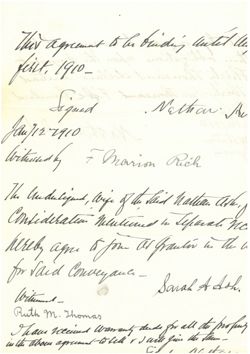 This agreement to be binding until
first, 1910—
Signed Nathan
Jan/12-1910
Witnessed by F Marion Rich
The Undersigned, wife of the said Nathan Ash,
Consideration mentioned in separate
hereby agree to join as Grantor in the
for said Conveyance—
Sarah A Ash.
Witnessed—
Ruth M. Thomas
I have received warranty deeds for all the
in the above agreement to